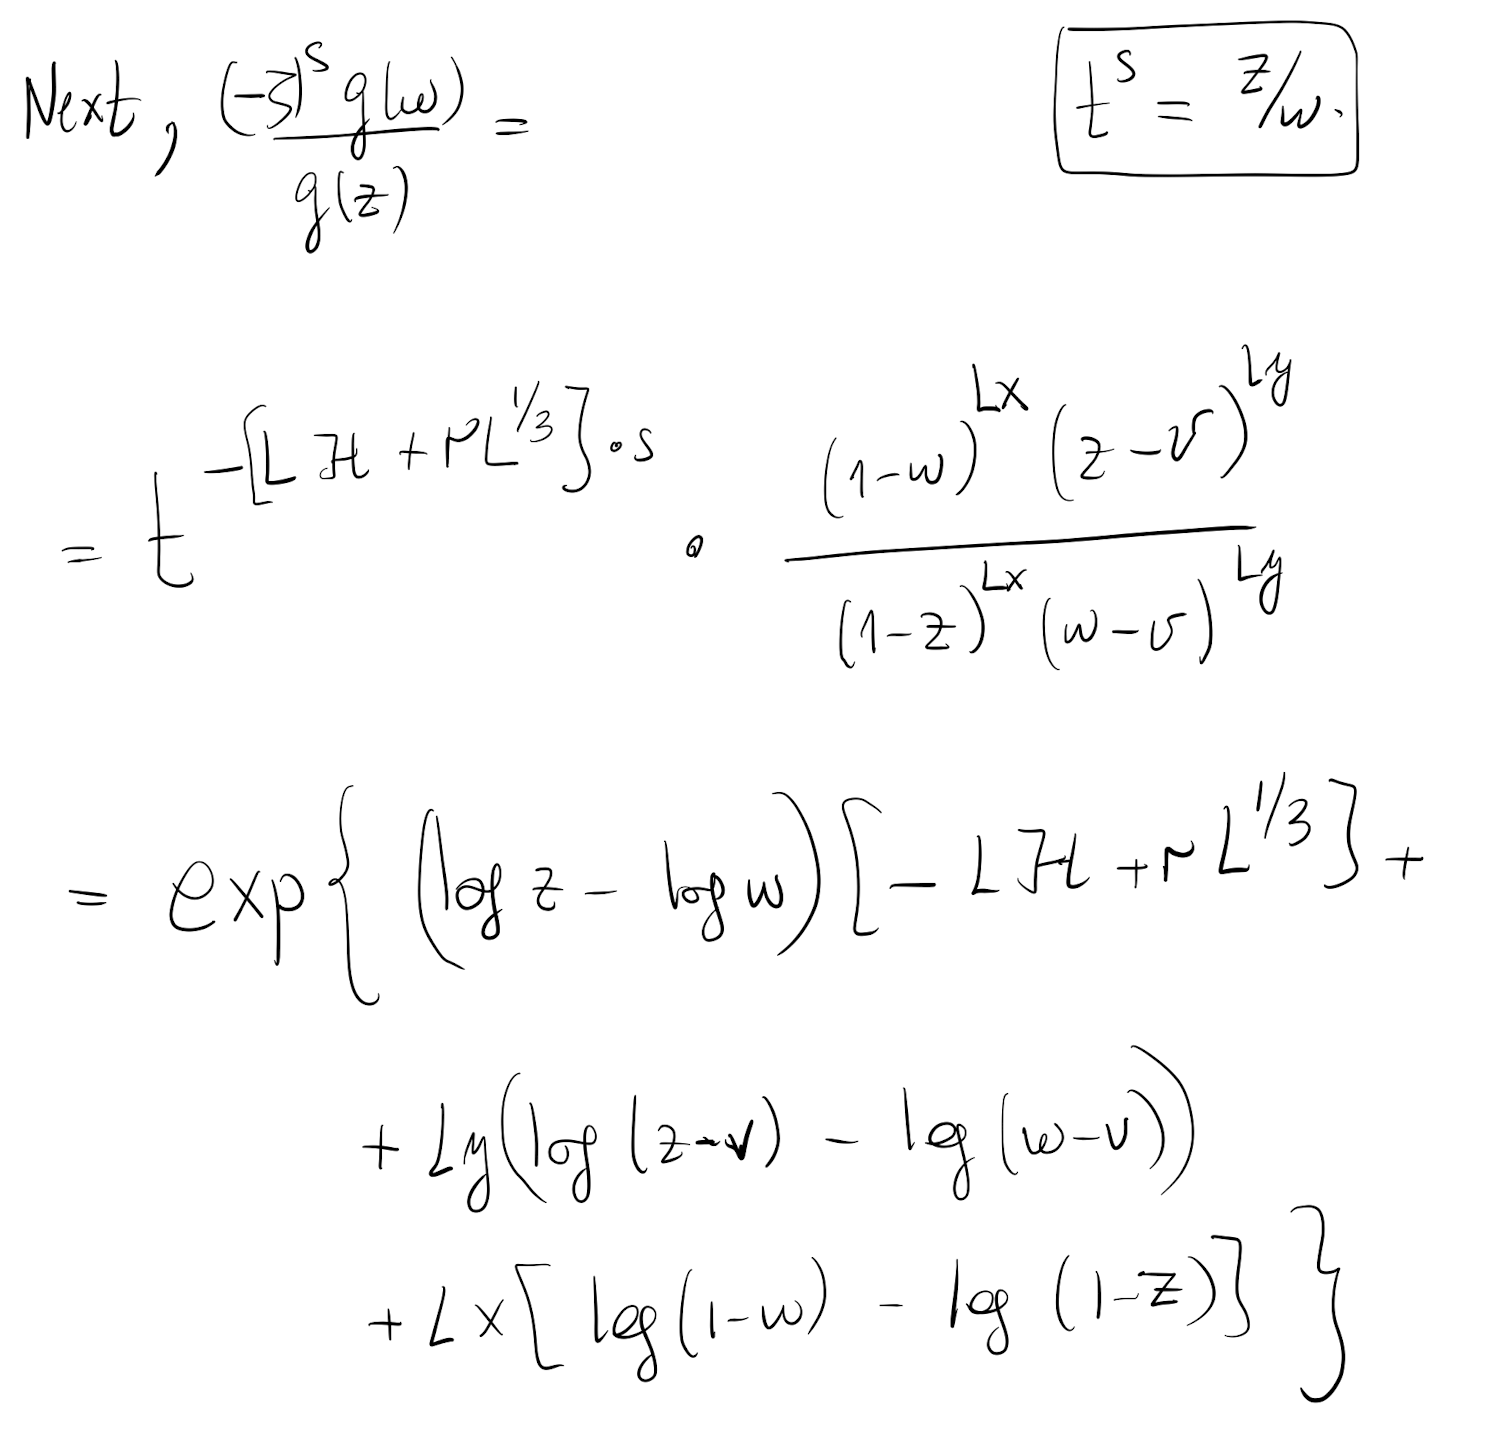 Next, \frac{(-ζ)^s g(w)}{g(z)} =
t^s = z/w.
= t^{-[L ℋ + r L^{1/3}] \cdot s} \cdot \frac{(1-w)^{Lx} (z-v)^{Ly}}{(1-z)^{Lx} (w-v)^{Ly}}
= exp{ (log z - log w) [- L ℋ + r L^{1/3}] +
+ Ly (log (z-v) - log (w-v))
+ Lx [ log (1-w) - log (1-z)] }